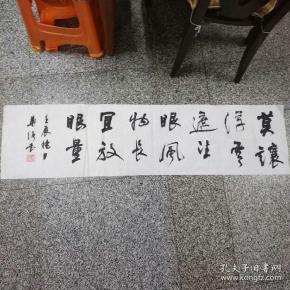 莫讓
浮雲
遮望
眼風
物長
宜放
眼量
孔夫子旧书网